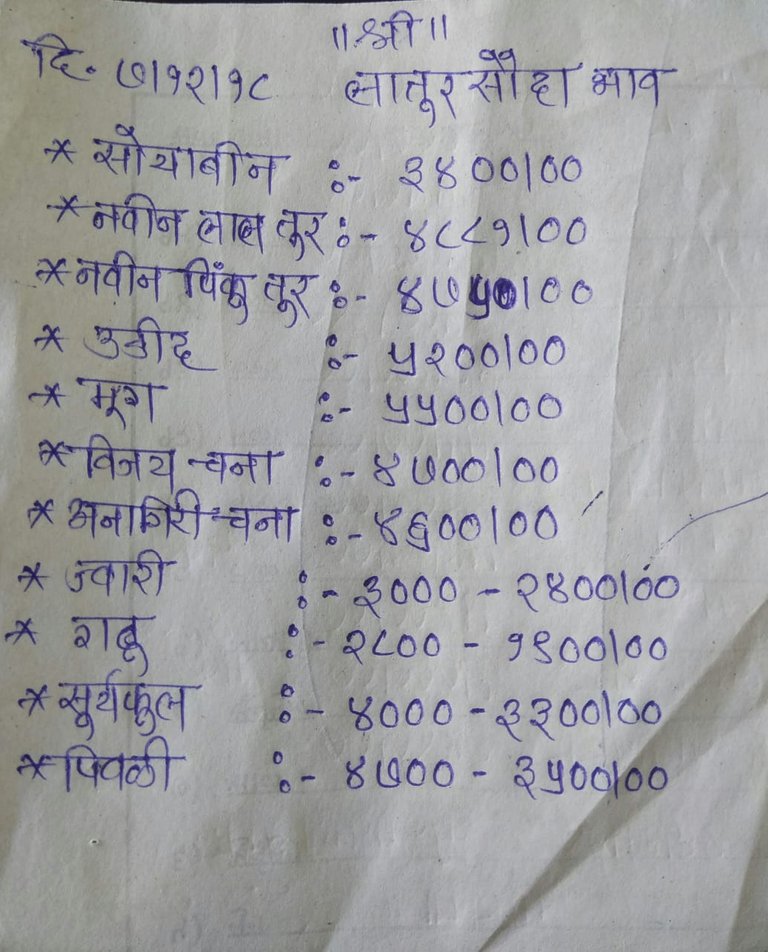 ॥श्री॥
दि. ७।१२।१८ लातूर सौदा भाव
* सोयाबीन :- ३४००।००
* नवीन लाल तुर :- ४८८१।००
* नवीन पिंकू तुर :- ४७५०।००
* उडीद :- ५२००।००
* मूग :- ५५००।००
* विजय चना :- ४७००।००
* अनागिरी चना :- ४६००।००
* ज्वारी :- ३००० - २४००।००
* गहू :- २८०० - १९००।००
* सूर्यफुल :- ४००० - ३३००।००
* पिवळी :- ४७०० - ३५००।००